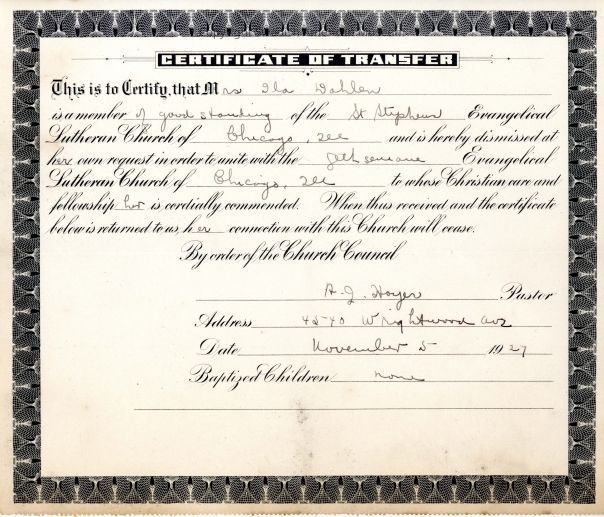 CERTIFICATE OF TRANSFER
This is to Certify, that Mrs Ila Dahlen
is a member of good standing of the St Stephens Evangelical
Lutheran Church of Chicago, Ill and is hereby dismissed at
her own request in order to unite with the Gethsemane Evangelical
Lutheran Church of Chicago, Ill to whose Christian care and
fellowship her is cordially commended. When thus received and the certificate
below is returned to us, her connection with this Church will cease.
By order of the Church Council
A. J. Hoyer Pastor
Address 4540 Wrightwood Ave
Date November 5 1927
Baptized Children none